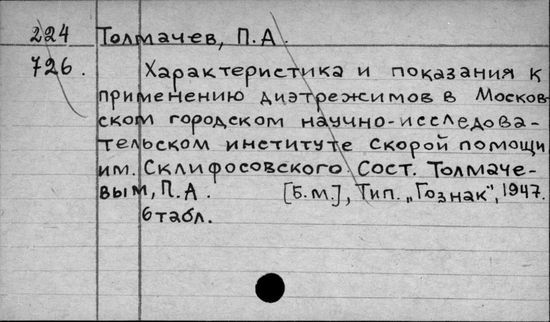 224 Толмачев, П.А.
726. Характеристика и показания к
применению диэтрежимов в Москов-
ском городском научно-исследова-
тельском институте Скорой помощи
им. Склифосовского. Сост. Толмаче-
вым, П.А. [Б.м.], Тип. „Гознак", 1947.
6 табл.